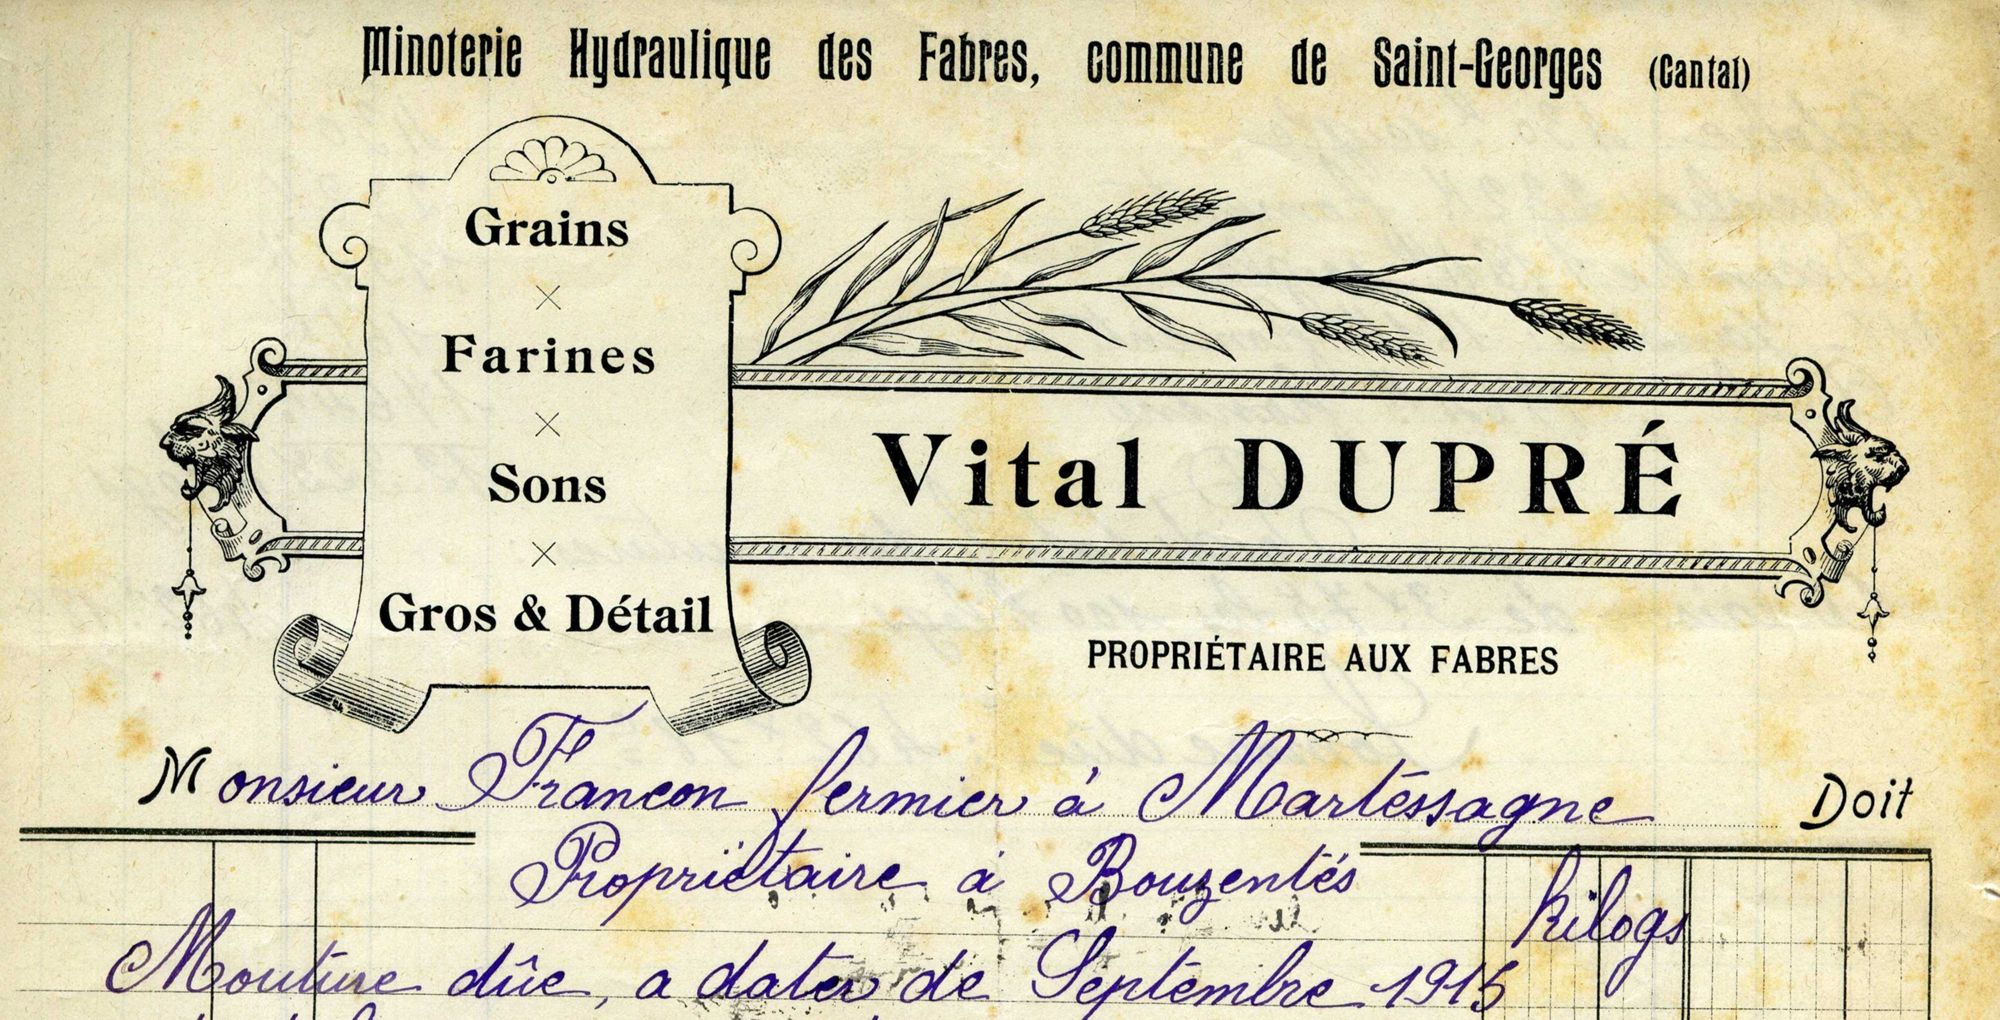 Minoterie Hydraulique des Fabres, commune de Saint-Georges (Cantal)
Grains
×
Farines
×
Sons
×
Gros & Détail
Vital DUPRÉ
PROPRIÉTAIRE AUX FABRES
Monsieur Francon fermier à Martessagne Doit
Propriétaire à Bouzentés
kilogs
Mouture dûe, a dater de Septembre 1915